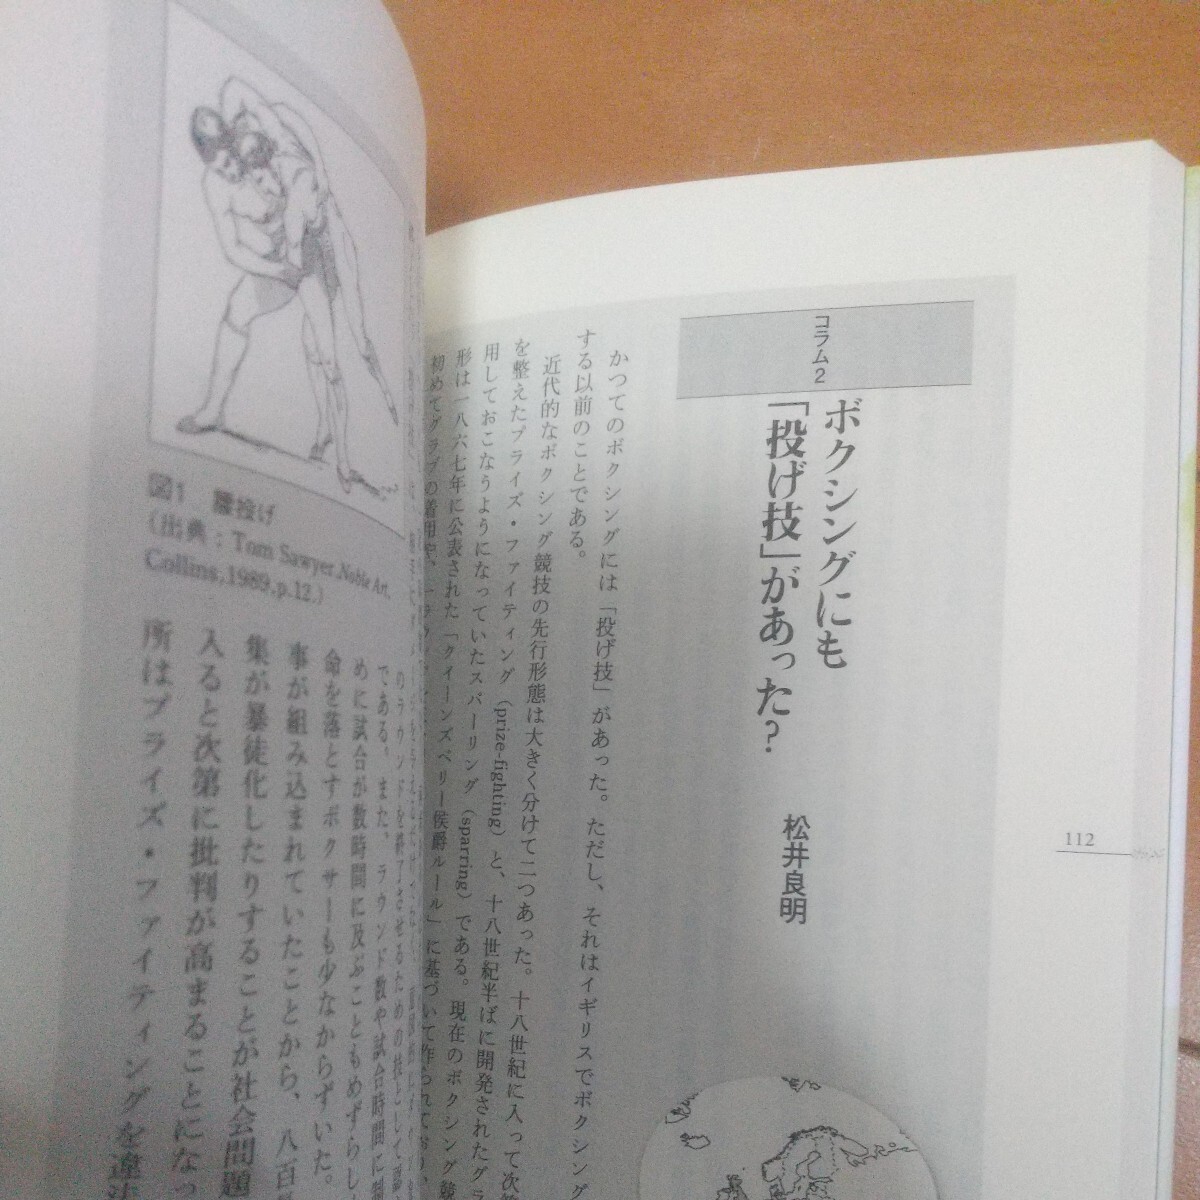 112
コラム2
ボクシングにも
「投げ技」があった?
松井良明
かつてのボクシングには「投げ技」があった。ただし、それはイギリスでボクシング
する以前のことである。
近代的なボクシング競技の先行形態は大きく分けて二つあった。十八世紀に入って次第
を整えたプライズ・ファイティング(prize-fighting)と、十八世紀半ばに開発されたグ
用しておこなうようになっていたスパーリング(sparring)である。現在のボクシング競
形は一八六七年に公表された「クイーンズベリー侯爵ルール」に基づいて作られており、
初めてグラブの着用や、
のラウンドを終了させるための技として認
である。また、ラウンド数や試合時間に制
めに試合が数時間に及ぶこともめずらし
命を落とすボクサーも少なからずいた。
事が組み込まれていたことから、八百
集が暴徒化したりすることが社会問題
入ると次第に批判が高まることになっ
所はプライズ・ファイティングを違法
図1 腰投げ
(出典:Tom Sawyer,Noble Art,
Collins,1989,p.12.)